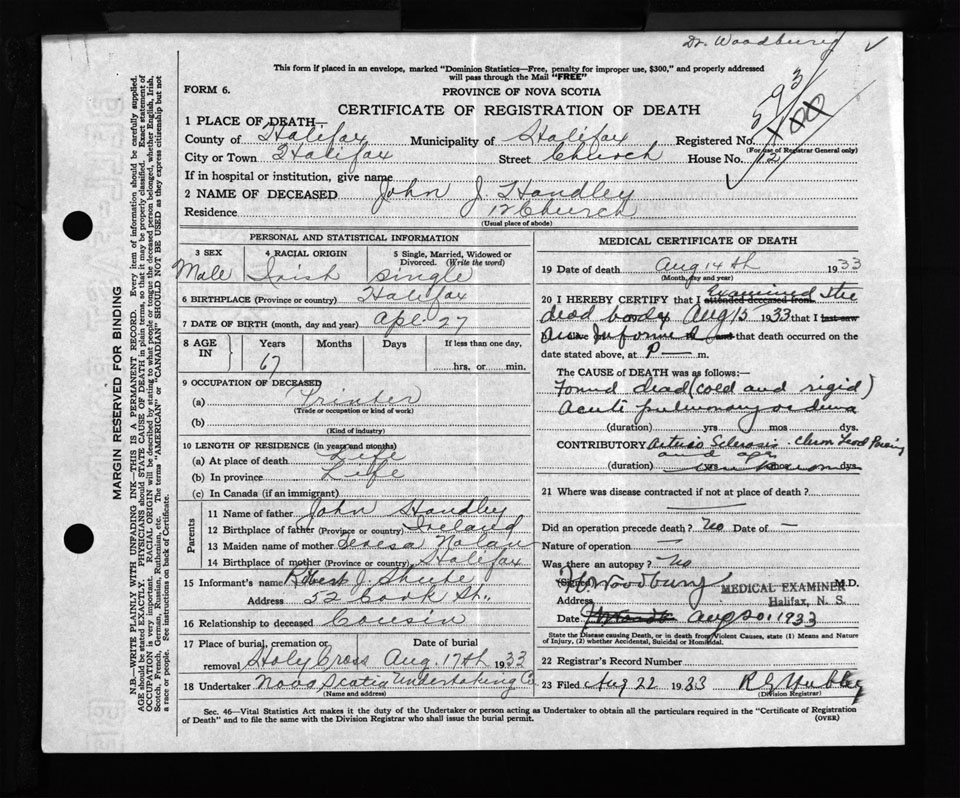 Dr. Woodbury ✓
This form if placed in an envelope, marked "Dominion Statistics—Free, penalty for improper use, $300," and properly addressed
will pass through the Mail "FREE"
FORM 6.
PROVINCE OF NOVA SCOTIA
593
CERTIFICATE OF REGISTRATION OF DEATH
1 PLACE OF DEATH—
County of Halifax Municipality of Halifax Registered No. 100
(For use of Registrar General only)
City or Town Halifax Street Church House No. 12
If in hospital or institution, give name
2 NAME OF DECEASED John J. Handley
Residence 12 Church
(Usual place of abode)
PERSONAL AND STATISTICAL INFORMATION
3 SEX 4 RACIAL ORIGIN 5 Single, Married, Widowed or Divorced. (Write the word)
Male Irish single
6 BIRTHPLACE (Province or country) Halifax
7 DATE OF BIRTH (month, day and year) Apl. 27
8 AGE IN Years Months Days If less than one day,
67 hrs. or min.
9 OCCUPATION OF DECEASED
(a) Printer
(Trade or occupation or kind of work)
(b)
(Kind of industry)
10 LENGTH OF RESIDENCE (in years and months)
(a) At place of death Life
(b) In province Life
(c) In Canada (if an immigrant)
Parents
11 Name of father John Handley
12 Birthplace of father (Province or country) Ireland
13 Maiden name of mother Teresa Nolan
14 Birthplace of mother (Province or country) Halifax
15 Informant's name Robert J. Shute
Address 52 Cook St.
16 Relationship to deceased Cousin
17 Place of burial, cremation or removal Date of burial
Holy Cross Aug. 17th 1933
18 Undertaker Nova Scotia Undertaking Co
(Name and address)
MEDICAL CERTIFICATE OF DEATH
19 Date of death Aug 14th 1933
(Month, day and year)
20 I HEREBY CERTIFY that I attended deceased from Examined the
dead body Aug 15 1933 that I last saw
Informed and that death occurred on the
date stated above, at P — m.
The CAUSE of DEATH was as follows:—
Found dead (cold and rigid)
Acute pulmonary oedema
(duration) yrs mos dys.
CONTRIBUTORY Arterio Sclerosis - Chron Lead Poisoning
and age
(duration) yrs mos dys
21 Where was disease contracted if not at place of death?
Did an operation precede death? No Date of —
Nature of operation —
Was there an autopsy? No
Woodbury MEDICAL EXAMINER M.D.
Address Halifax, N. S.
Date Aug 20 1933
State the Disease causing Death, or in death from Violent Causes, state (1) Means and Nature of Injury, (2) whether Accidental, Suicidal or Homicidal.
22 Registrar's Record Number
23 Filed Aug 22 1933
(Division Registrar)
Sec. 46—Vital Statistics Act makes it the duty of the Undertaker or person acting as Undertaker to obtain all the particulars required in the "Certificate of Registration
of Death" and to file the same with the Division Registrar who shall issue the burial permit.
(OVER)
MARGIN RESERVED FOR BINDING
N.B.—WRITE PLAINLY WITH UNFADING INK—THIS IS A PERMANENT RECORD. Every item of information should be carefully supplied.
AGE should be stated EXACTLY. PHYSICIANS should STATE CAUSE OF DEATH in plain terms, so that it may be properly classified. Exact statement of
OCCUPATION is very important. RACIAL ORIGIN will be described by stating to what people or tongue the deceased person belonged, whether English, Irish,
Scotch, French, German, Russian, Ruthenian, etc. The terms "AMERICAN" or "CANADIAN" SHOULD NOT BE USED as they express citizenship but not
a race or people. See instructions on back of Certificate.